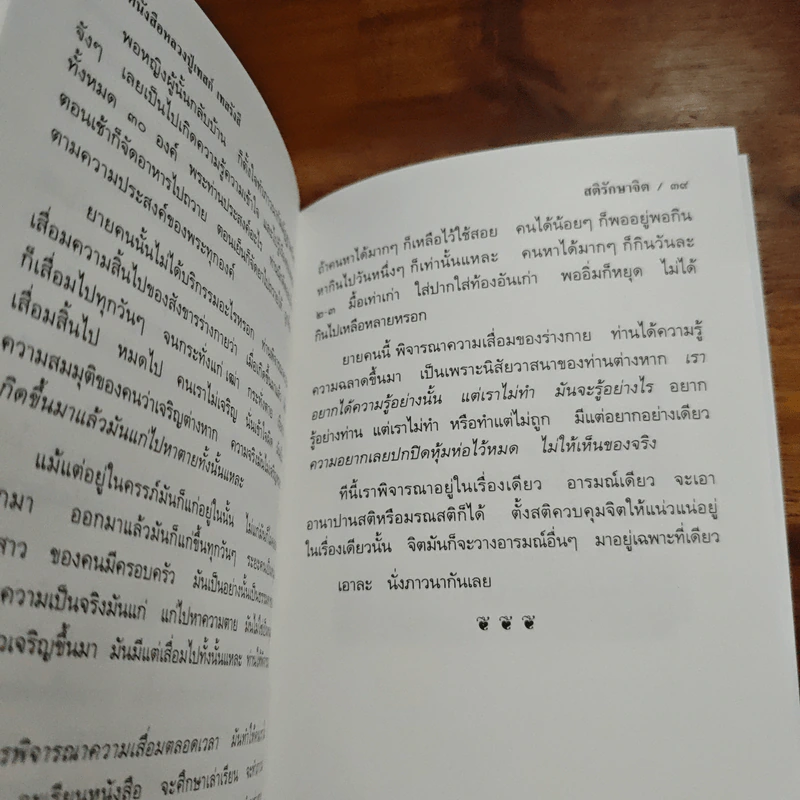 หนังสือหลวงปู่เทสก์ เทสรังสี
พอหญิงผู้นั้นกลับบ้าน ก็ตั้งใจทำ
จังๆ เลยเป็นไปเกิดความรู้ความเข้าใจ
ทั้งหมด ๓๐ องค์ พระท่านประสงค์อะไร
ตอนเช้าก็จัดอาหารไปถวาย ตอนเย็นก็จัด
ตามความประสงค์ของพระทุกองค์
ยายคนนั้นไม่ได้บริกรรมอะไรหรอก
เสื่อมความสิ้นไปของสังขารร่างกายว่า เมื่อเกิดขึ้น
ก็เสื่อมไปทุกวันๆ จนกระทั่งแก่ เฒ่า กระทั่งตาย
เสื่อมสิ้นไป หมดไป คนเราไม่เจริญ
ความสมมุติของคนว่าเจริญต่างหาก
กิดขึ้นมาแล้วมันแก่ไปหาตายทั้งนั้นแหละ
แม้แต่อยู่ในครรภ์มันก็แก่อยู่ในนั้น
กมา ออกมาแล้วมันก็แก่ขึ้นทุกวันๆ
สาว ของคนมีครอบครัว มันเป็นอย่างนั้น
ความเป็นจริงมันแก่ แก่ไปหาความตาย
วเจริญขึ้นมา มันมีแต่เสื่อมไปทั้งนั้นแหละ
รพิจารณาความเสื่อมตลอดเวลา มันทำให้
จะเรียนหนังสือ จะศึกษาเล่าเรียน
สติรักษาจิต / ๓๙
ถ้าคนหาได้มากๆ ก็เหลือไว้ใช้สอย คนได้น้อยๆ ก็พออยู่พอกิน
หากินไปวันหนึ่งๆ ก็เท่านั้นแหละ คนหาได้มากๆ ก็กินวันละ
๒-๓ มื้อเท่าเก่า ใส่ปากใส่ท้องอันเก่า พออิ่มก็หยุด ไม่ได้
กินไปเหลือหลายหรอก
ยายคนนี้ พิจารณาความเสื่อมของร่างกาย ท่านได้ความรู้
ความฉลาดขึ้นมา เป็นเพราะนิสัยวาสนาของท่านต่างหาก เรา
อยากได้ความรู้อย่างนั้น แต่เราไม่ทำ มันจะรู้อย่างไร อยาก
รู้อย่างท่าน แต่เราไม่ทำ หรือทำแต่ไม่ถูก มีแต่อยากอย่างเดียว
ความอยากเลยปกปิดหุ้มห่อไว้หมด ไม่ให้เห็นของจริง
ทีนี้เราพิจารณาอยู่ในเรื่องเดียว อารมณ์เดียว จะเอา
อานาปานสติหรือมรณสติก็ได้ ตั้งสติควบคุมจิตให้แน่วแน่อยู่
ในเรื่องเดียวนั้น จิตมันก็จะวางอารมณ์อื่นๆ มาอยู่เฉพาะที่เดียว
เอาละ นั่งภาวนากันเลย